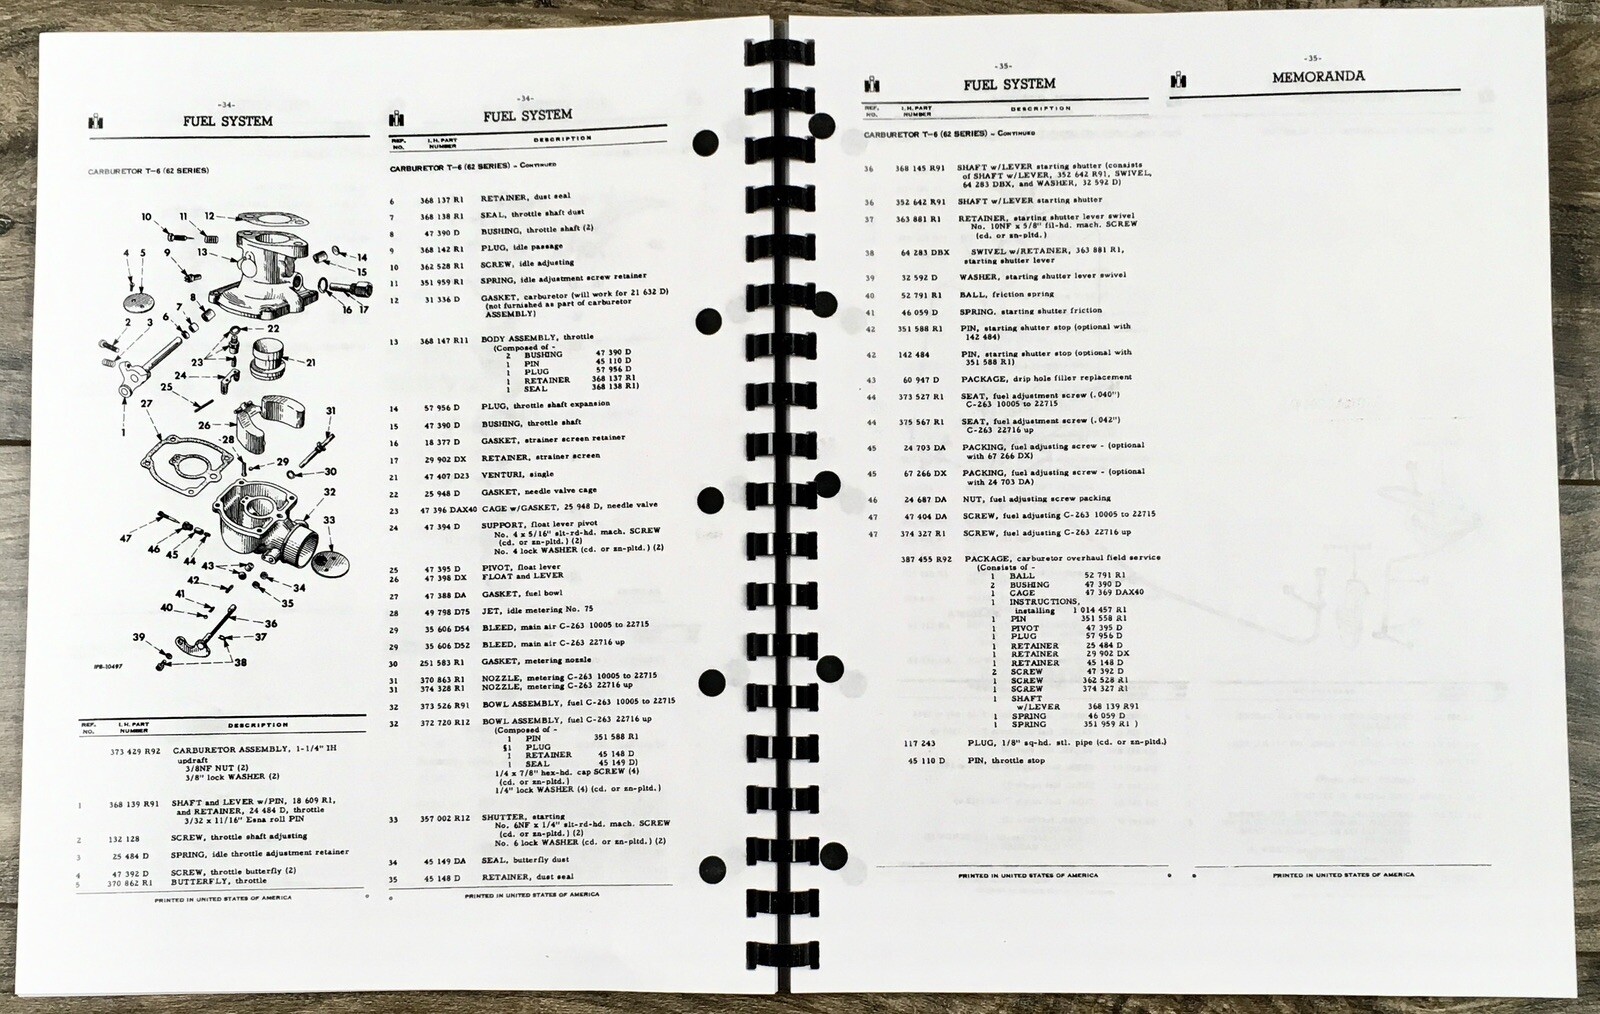 -34-
FUEL SYSTEM
CARBURETOR T-6 (62 SERIES)
10 11 12
13
14
15
16 17
9
4 5
8
7
6
2 3
22
23
21
24
25
1
27
26
28
31
29
30
32
33
47
46
45
44
43
34
42
35
41
40
36
39
37
38
IPB-10497
REF. NO. I.H. PART NUMBER DESCRIPTION
373 429 R92 CARBURETOR ASSEMBLY, 1-1/4" IH
updraft
3/8NF NUT (2)
3/8" lock WASHER (2)
1 368 139 R91 SHAFT and LEVER w/PIN, 18 609 R1,
and RETAINER, 24 484 D, throttle
3/32 x 11/16" Esna roll PIN
2 132 128 SCREW, throttle shaft adjusting
3 25 484 D SPRING, idle throttle adjustment retainer
4 47 392 D SCREW, throttle butterfly (2)
5 370 862 R1 BUTTERFLY, throttle
PRINTED IN UNITED STATES OF AMERICA
-34-
FUEL SYSTEM
REF. NO. I.H. PART NUMBER DESCRIPTION
CARBURETOR T-6 (62 SERIES) - CONTINUED
6 368 137 R1 RETAINER, dust seal
7 368 138 R1 SEAL, throttle shaft dust
8 47 390 D BUSHING, throttle shaft (2)
9 368 142 R1 PLUG, idle passage
10 362 528 R1 SCREW, idle adjusting
11 351 959 R1 SPRING, idle adjustment screw retainer
12 31 336 D GASKET, carburetor (will work for 21 632 D)
(not furnished as part of carburetor
ASSEMBLY)
13 368 147 R11 BODY ASSEMBLY, throttle
(Composed of -
2 BUSHING 47 390 D
1 PIN 45 110 D
1 PLUG 57 956 D
1 RETAINER 368 137 R1
1 SEAL 368 138 R1)
14 57 956 D PLUG, throttle shaft expansion
15 47 390 D BUSHING, throttle shaft
16 18 377 D GASKET, strainer screen retainer
17 29 902 DX RETAINER, strainer screen
21 47 407 D23 VENTURI, single
22 25 948 D GASKET, needle valve cage
23 47 396 DAX40 CAGE w/GASKET, 25 948 D, needle valve
24 47 394 D SUPPORT, float lever pivot
No. 4 x 5/16" slt-rd-hd. mach. SCREW
(cd. or zn-pltd.) (2)
No. 4 lock WASHER (cd. or zn-pltd.) (2)
25 47 395 D PIVOT, float lever
26 47 398 DX FLOAT and LEVER
27 47 388 DA GASKET, fuel bowl
28 49 798 D75 JET, idle metering No. 75
29 35 606 D54 BLEED, main air C-263 10005 to 22715
29 35 606 D52 BLEED, main air C-263 22716 up
30 251 583 R1 GASKET, metering nozzle
31 370 863 R1 NOZZLE, metering C-263 10005 to 22715
31 374 328 R1 NOZZLE, metering C-263 22716 up
32 373 526 R91 BOWL ASSEMBLY, fuel C-263 10005 to 22715
32 372 720 R12 BOWL ASSEMBLY, fuel C-263 22716 up
(Composed of -
1 PIN 351 588 R1
§1 PLUG
1 RETAINER 45 148 D
1 SEAL 45 149 D)
1/4 x 7/8" hex-hd. cap SCREW (4)
(cd. or zn-pltd.)
1/4" lock WASHER (4) (cd. or zn-pltd.)
33 357 002 R12 SHUTTER, starting
No. 6NF x 1/4" slt-rd-hd. mach. SCREW
(cd. or zn-pltd.) (2)
No. 6 lock WASHER (cd. or zn-pltd.) (2)
34 45 149 DA SEAL, butterfly dust
35 45 148 D RETAINER, dust seal
PRINTED IN UNITED STATES OF AMERICA
-35-
FUEL SYSTEM
REF. NO. I.H. PART NUMBER DESCRIPTION
CARBURETOR T-6 (62 SERIES) - CONTINUED
36 368 145 R91 SHAFT w/LEVER starting shutter (consists
of SHAFT w/LEVER, 352 642 R91, SWIVEL,
64 283 DBX, and WASHER, 32 592 D)
36 352 642 R91 SHAFT w/LEVER starting shutter
37 363 881 R1 RETAINER, starting shutter lever swivel
No. 10NF x 5/8" fil-hd. mach. SCREW
(cd. or zn-pltd.)
38 64 283 DBX SWIVEL w/RETAINER, 363 881 R1,
starting shutter lever
39 32 592 D WASHER, starting shutter lever swivel
40 52 791 R1 BALL, friction spring
41 46 059 D SPRING, starting shutter friction
42 351 588 R1 PIN, starting shutter stop (optional with
142 484)
42 142 484 PIN, starting shutter stop (optional with
351 588 R1)
43 60 947 D PACKAGE, drip hole filler replacement
44 373 527 R1 SEAT, fuel adjustment screw (.040")
C-263 10005 to 22715
44 375 567 R1 SEAT, fuel adjustment screw (.042")
C-263 22716 up
45 24 703 DA PACKING, fuel adjusting screw - (optional
with 67 266 DX)
45 67 266 DX PACKING, fuel adjusting screw - (optional
with 24 703 DA)
46 24 687 DA NUT, fuel adjusting screw packing
47 47 404 DA SCREW, fuel adjusting C-263 10005 to 22715
47 374 327 R1 SCREW, fuel adjusting C-263 22716 up
387 455 R92 PACKAGE, carburetor overhaul field service
(Consists of -
1 BALL 52 791 R1
2 BUSHING 47 390 D
1 CAGE 47 369 DAX40
1 INSTRUCTIONS,
installing 1 014 457 R1
1 PIN 351 558 R1
1 PIVOT 47 395 D
1 PLUG 57 956 D
1 RETAINER 25 484 D
1 RETAINER 29 902 DX
1 RETAINER 45 148 D
2 SCREW 47 392 D
1 SCREW 362 528 R1
1 SCREW 374 327 R1
1 SHAFT
w/LEVER 368 139 R91
1 SPRING 46 059 D
1 SPRING 351 959 R1 )
117 243 PLUG, 1/8" sq-hd. stl. pipe (cd. or zn-pltd.)
45 110 D PIN, throttle stop
PRINTED IN UNITED STATES OF AMERICA
-35-
MEMORANDA
PRINTED IN UNITED STATES OF AMERICA